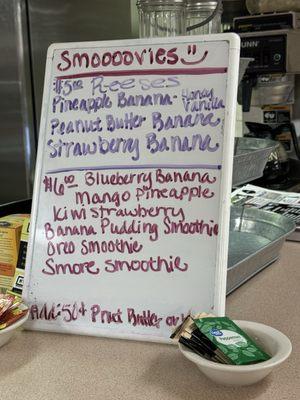 Smoooovies
$5.00 Reeses
Pineapple Banana - Honey Vanilla
Peanut Butter Banana
Strawberry Banana
$6.00 Blueberry Banana
Mango Pineapple
Kiwi strawberry
Banana Pudding Smoothie
Oreo Smoothie
Smore smoothie
Add: 50¢ Pnut Butter or